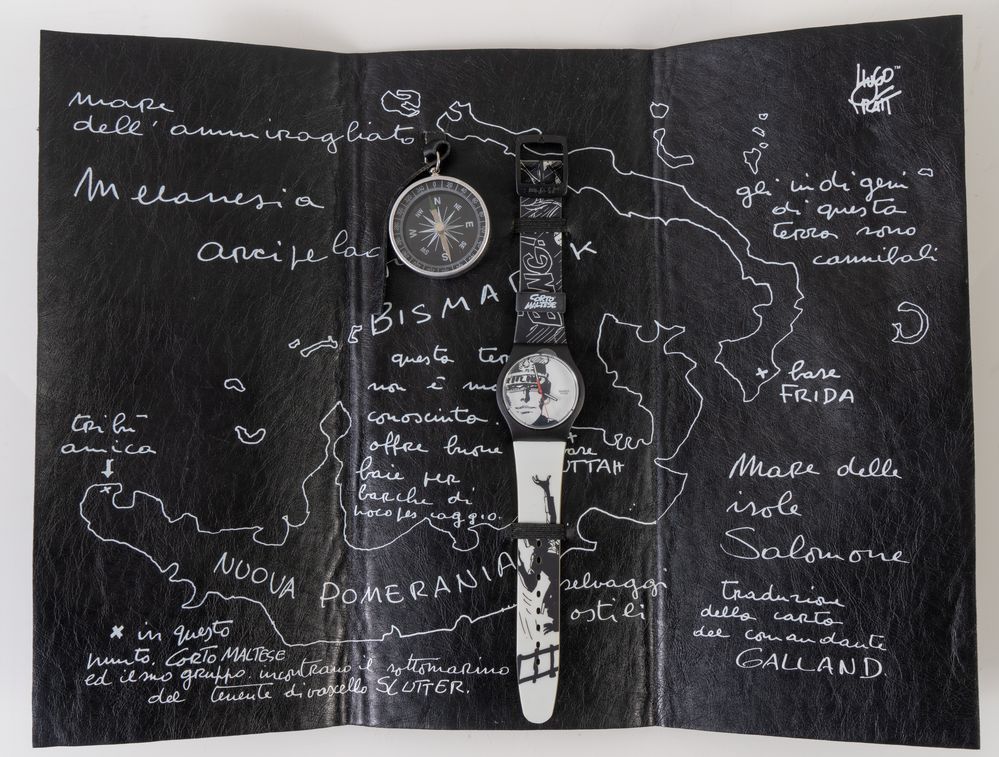 mare
dell'ammiragliato
Melanesia
arcipelag
BISMA K
questa ter
non è mo
conosciuta.
offre buone
baie per
barche di
poco pescaggio.
HUGO
PRATT
™
gli indigeni
di questa
terra sono
cannibali
N
NE
E
S
SW
W
NW
CORTO
MALTESE
tribù
amica
x
NUOVA POMERANIA
selvaggi
ostili
x in questo
punto. CORTO MALTESE
ed il suo gruppo. incontrano il sottomarino
del tenente di vascello SLUTTER.
x base
FRIDA
+
base
UTTAH
Mare delle
isole
Salomone
traduzione
della carta
del comandante
GALLAND.